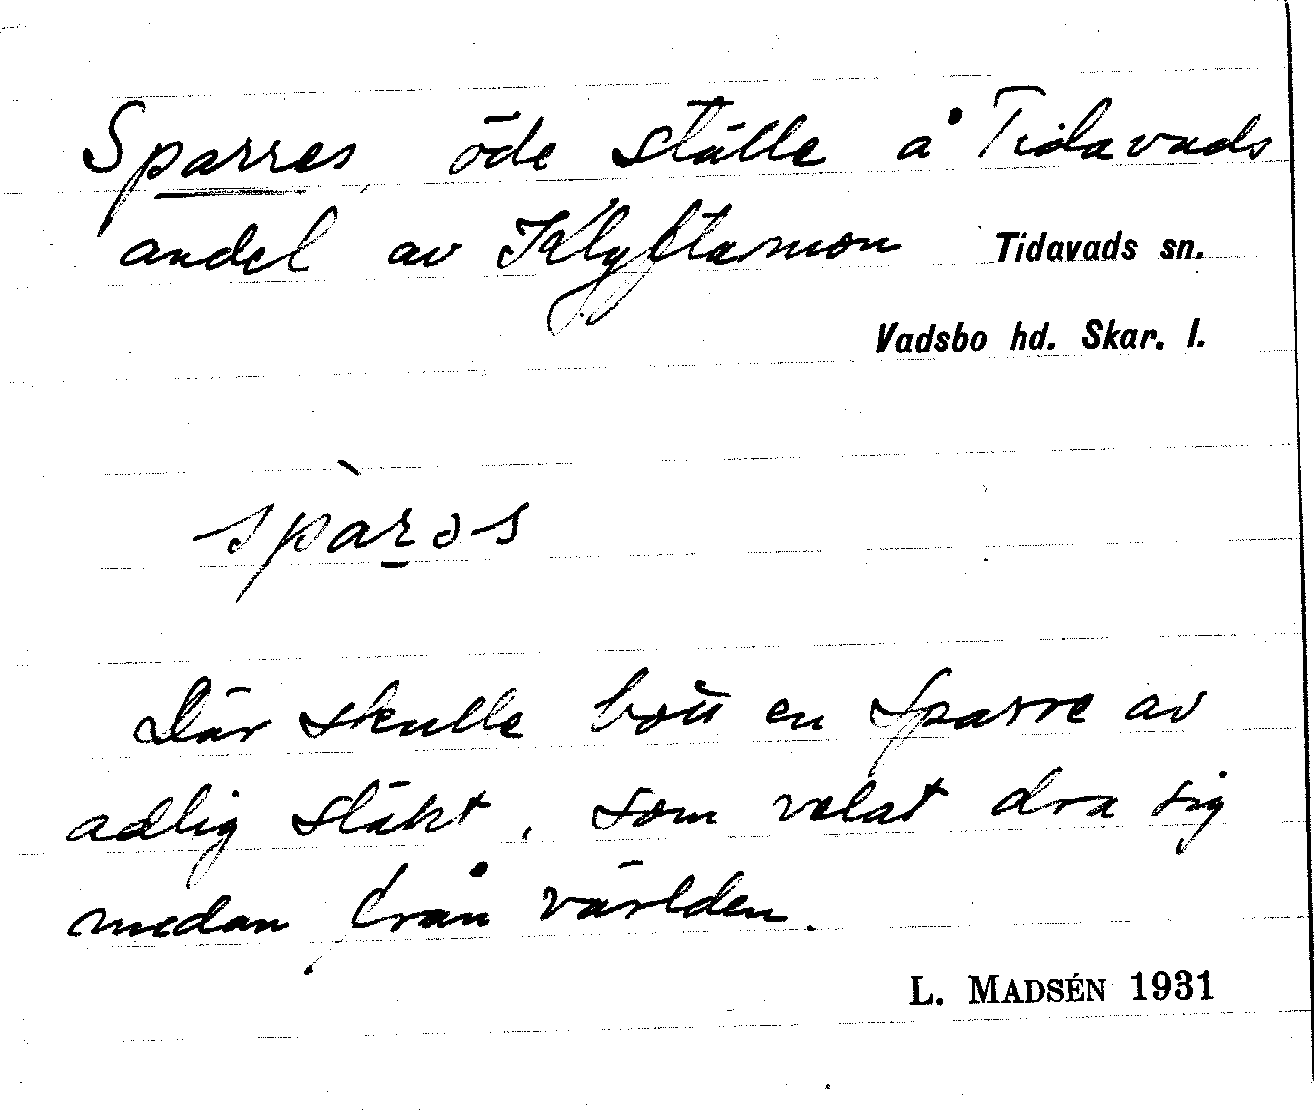 Sparres, öde ställe å Tidavads
andel av Klyftamon Tidavads sn.
Vadsbo hd. Skar. l.
spàrəs
Där skulle bott en Sparre av
adlig släkt, som velat dra sig
undan från världen.
L. MADSÉN 1931